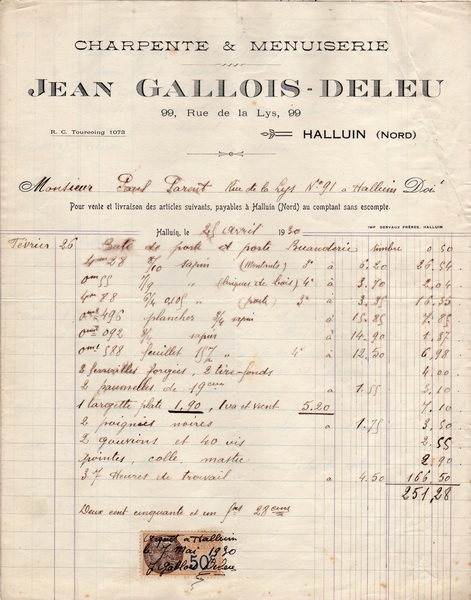 CHARPENTE & MENUISERIE
JEAN GALLOIS-DELEU
99, Rue de la Lys, 99
R. C. Tourcoing 1073
HALLUIN (NORD)
Monsieur Paul Parent Rue de la Lys N° 91 à Halluin Doit
Pour vente et livraison des articles suivants, payables à Halluin (Nord) au comptant sans escompte.
IMP GERVAUX FRÈRES, HALLUIN
Halluin, le 25 avril 1930
Février 26 de porte et porte Buanderie timbre 0.50
sapin (Montants) 3° à 6.20 26.54
0m55 " (briques de bois) 4° à 3.70 2.04
" (porte) 3° à 3.35 16.35
0m²496 plancher 3/4 sapin à 15.85 7.85
0m²092 sapin à 14.90 1.37
0m²588 feuillet " 4° à 12.50 6.98
2 forgées, 2 tire-fonds 4.00
2 paumelles de 19cm à 1.55 3.10
1 targette plate 1.90, 1 va et vient 5.20 7.10
2 poignées noires à 1.75 3.50
2 gouvions et 40 vis 2.55
pointes, colle, mastic 2.90
37 Heures de travail à 4.50 166.50
251,28
Deux cent cinquante et un frs 28 cmes
acquit à Halluin
le 7 Mai 1930
50c
J. Gallois Deleu